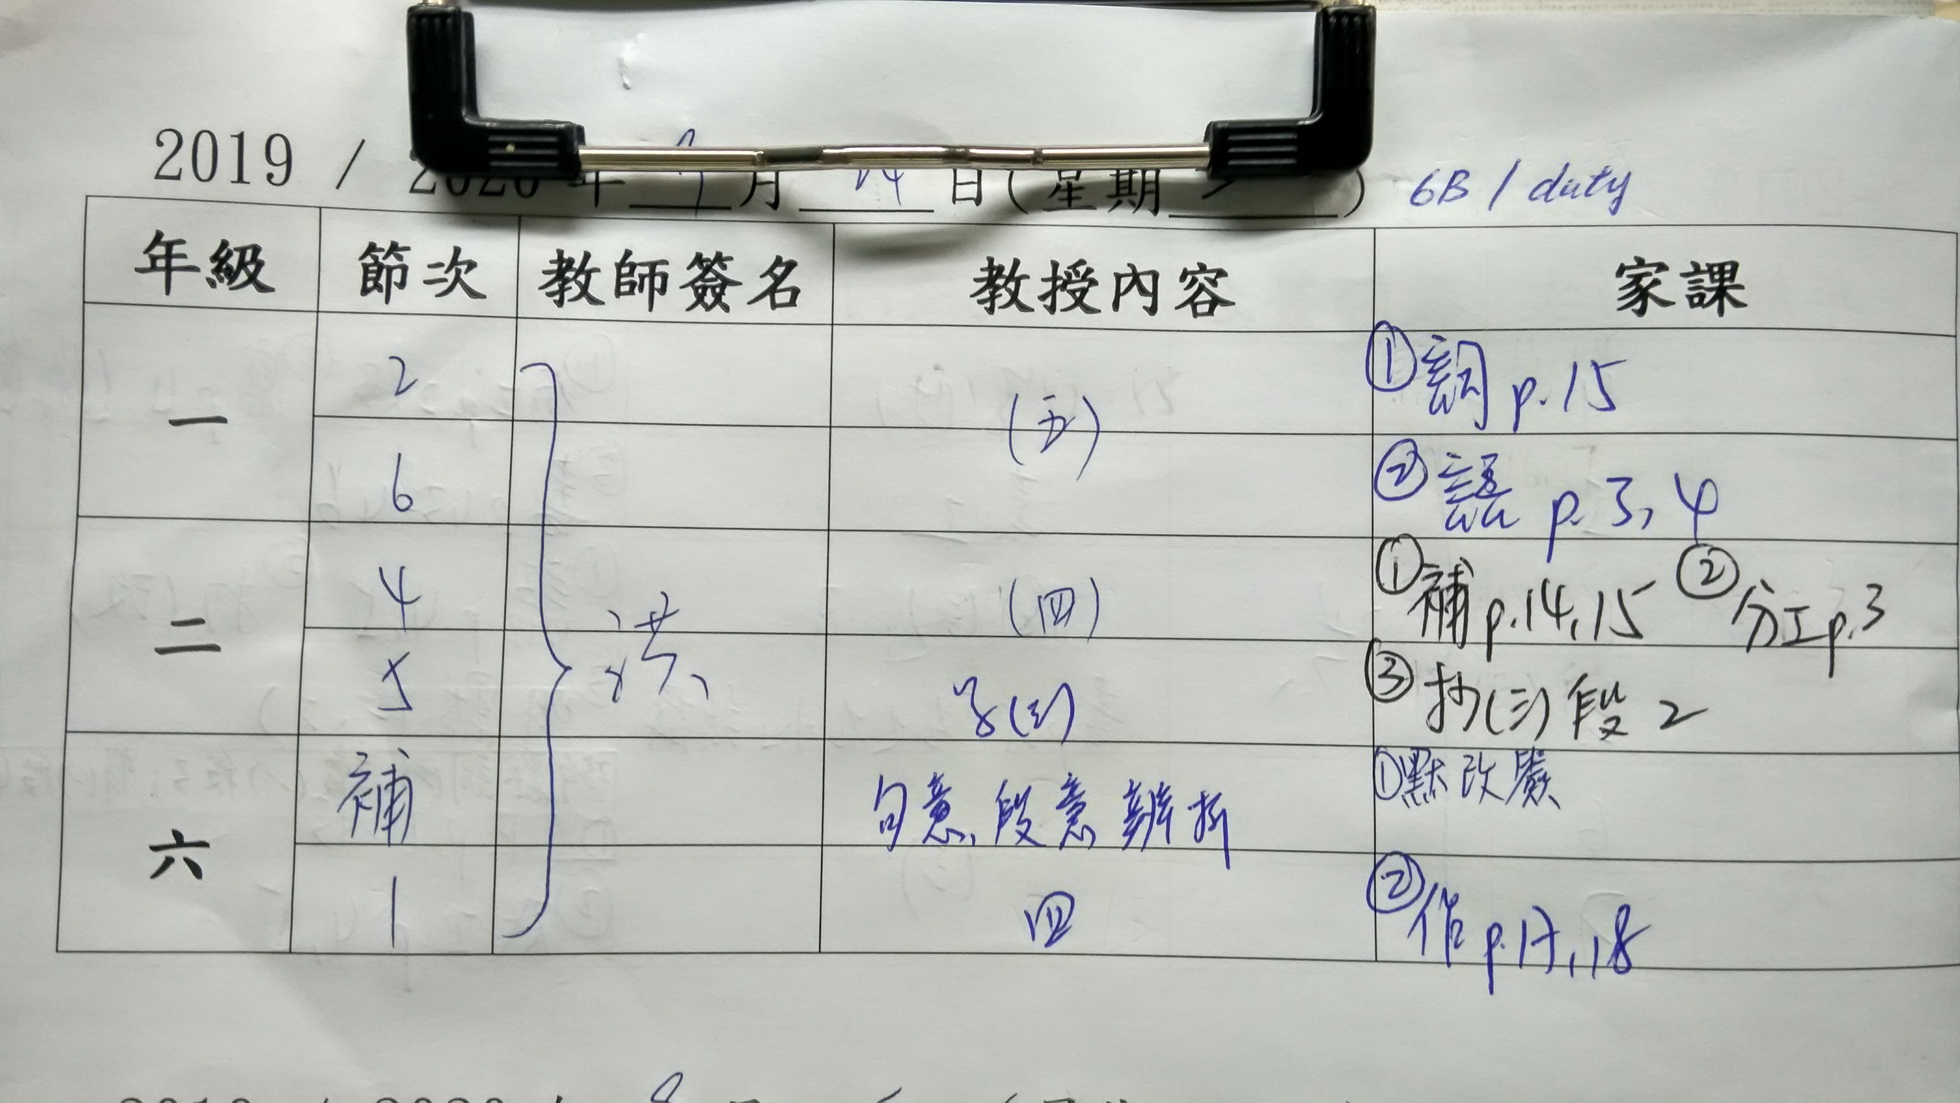 2019 / 2020 年 9 月 日(星期 ) 6B / duty
年級 節次 教師簽名 教授內容 家課
一 2 (五) ①詞 p.15
6 ②語 p.3,4
二 4 洪 (四) ①補p.14,15 ②分工p.3
5 (三) ③抄(三)段2
六 補 句意、段意辨析 ①默改
1 四 ②作p.17,18